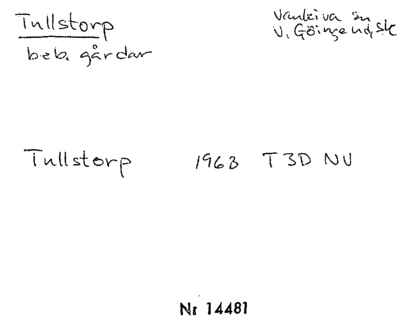 Tullstorp
Vankiva sn
beb. gårdar
V. Göinge hd, Sk
Tullstorp 1963 T3D NV
Nr 14481